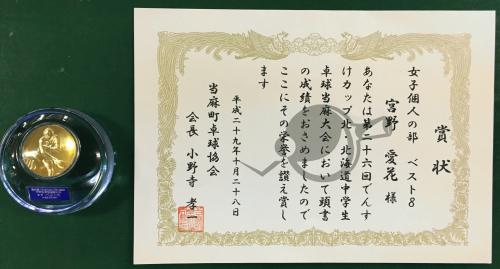 賞状
女子個人の部 ベスト8
宮野 愛花 様
あなたは第二十六回でんす
けカップ北・北海道中学生
卓球当麻大会において頭書
の成績をおさめましたので
ここにその栄誉を讃え賞し
ます
平成二十九年十月二十八日
当麻町卓球協会
会長 小野寺 孝一